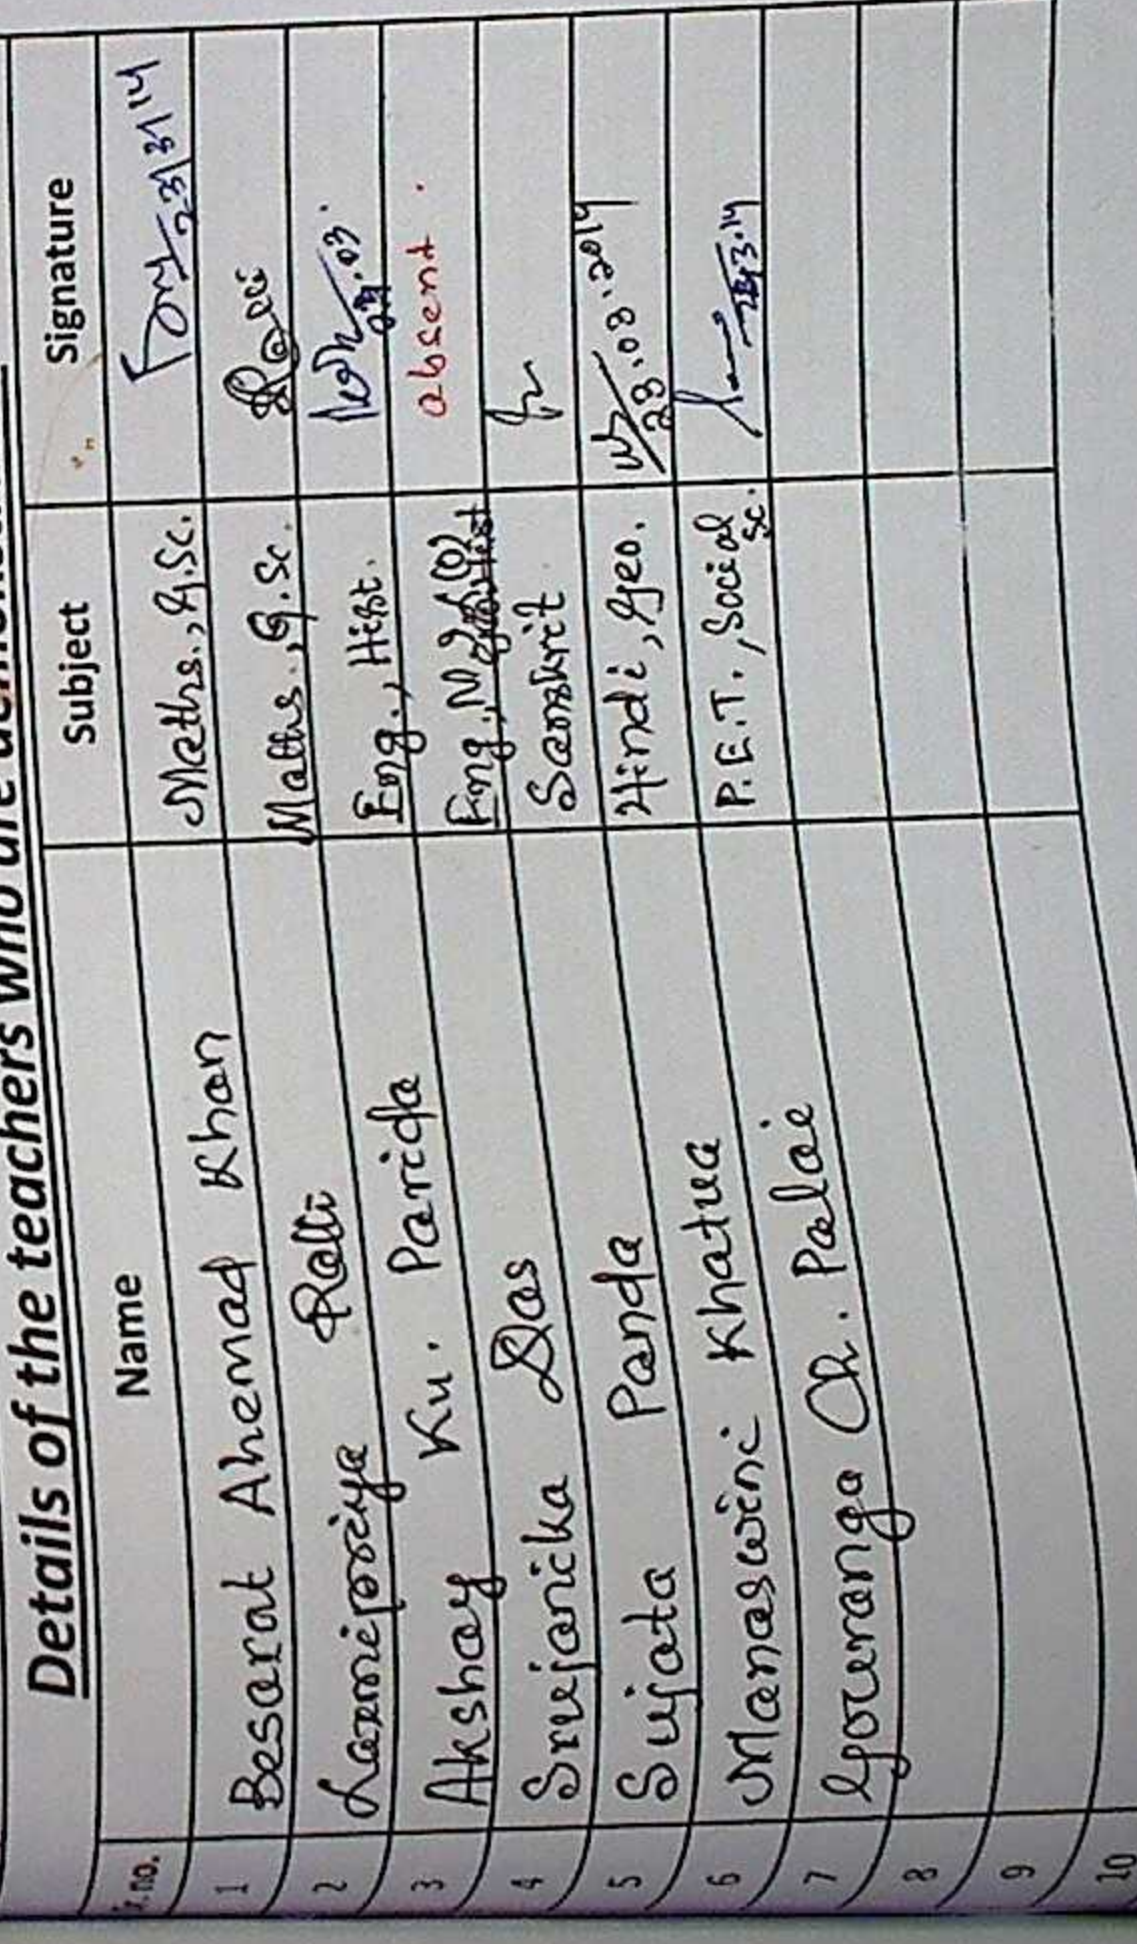 Details of the teachers who are
Sr. no. Name Subject Signature
1 Besarat Ahemad Khan Maths., G.Sc. 23/3/14
2 Laxmipriya Ralli Maths., G.Sc.
3 Akshay Ku. Parida Eng., Hist. 23.03.
4 Srujanika Das Eng., absent.
5 Sujata Panda Sanskrit
6 Manaswini Khatua Hindi, Geo. 23.03.2014
7 Gouranga Ch. Palai P.E.T., Social Sc. 23.3.14
8
9
10